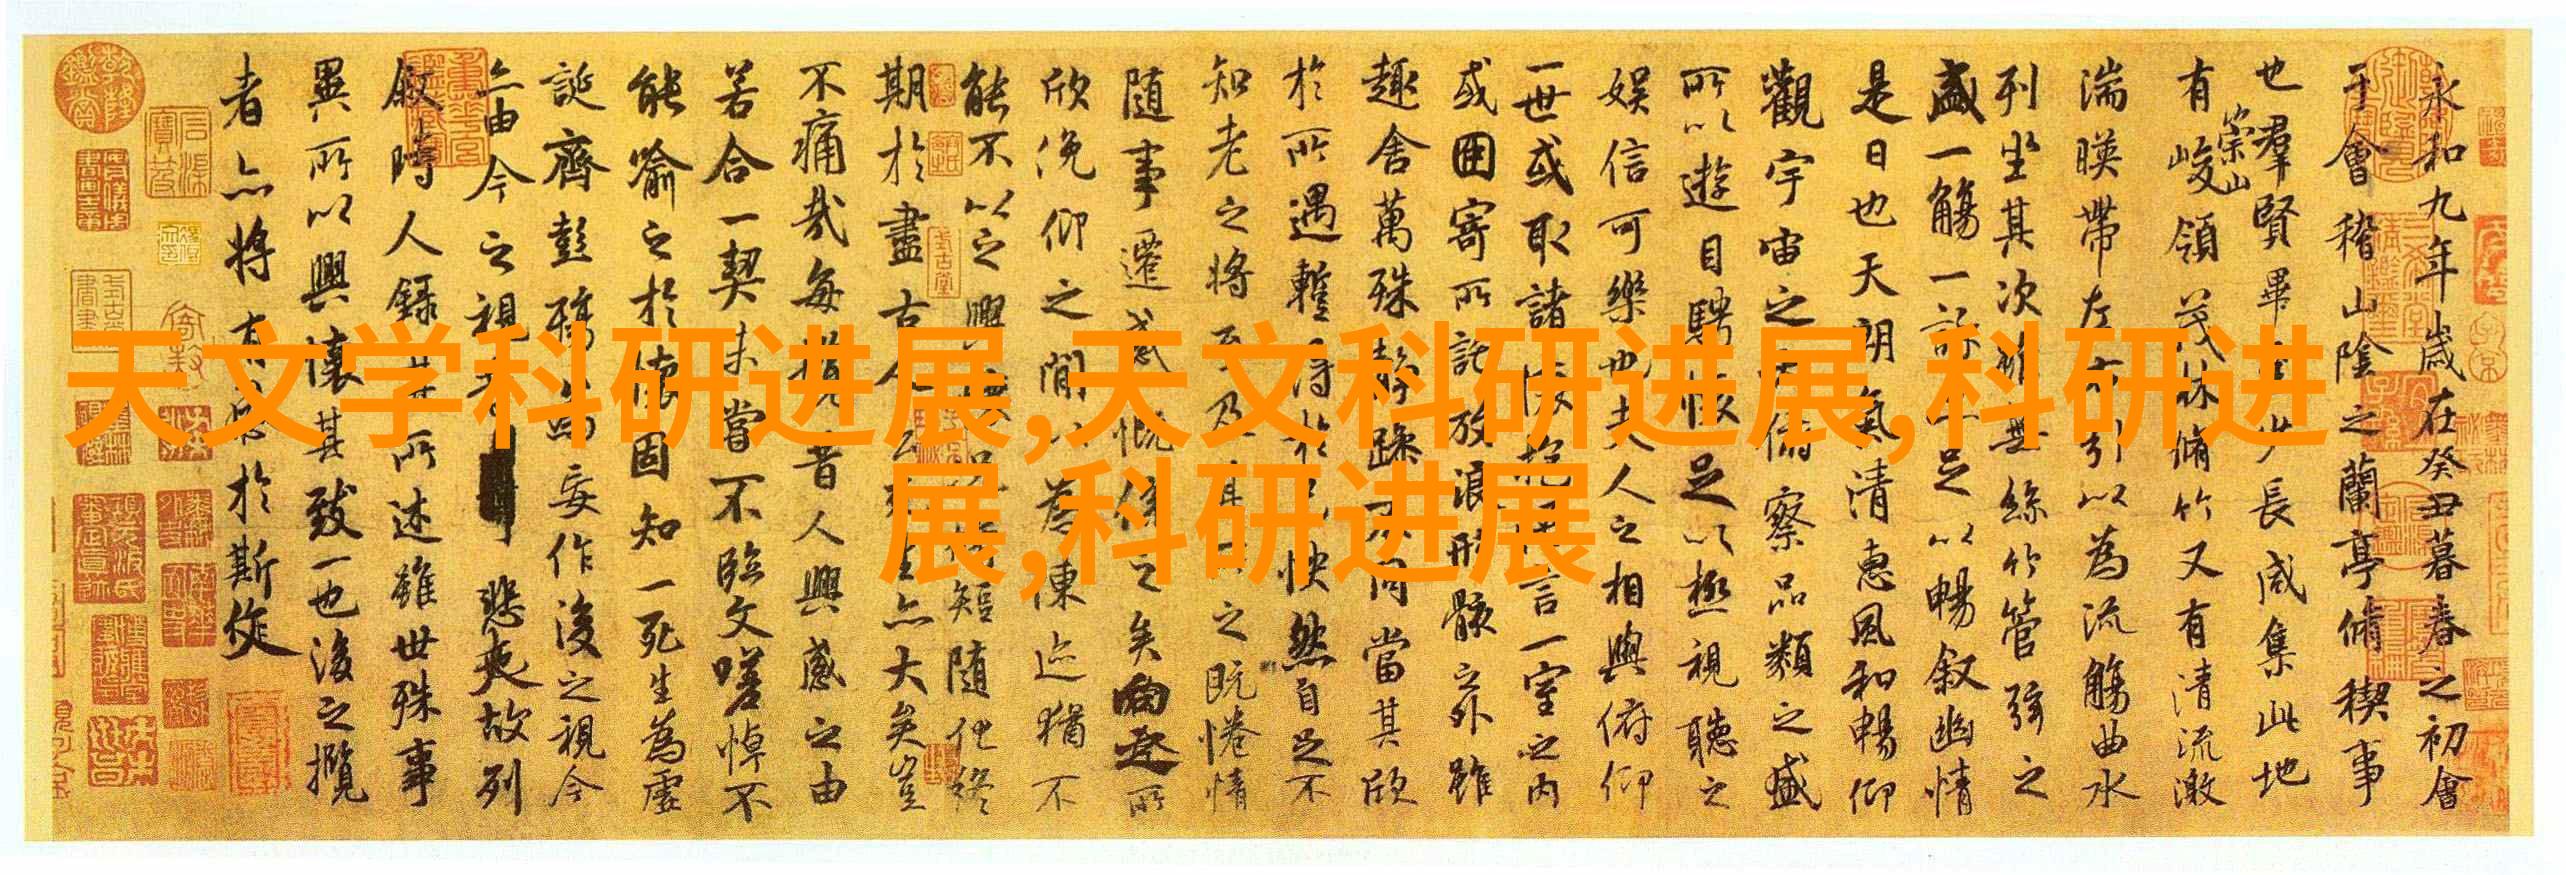 天文学科研进展,天文科研进展,科研进
展,科研进展
永和九年歲在癸丑暮春之初會
于會稽山陰之蘭亭脩稧事
也羣賢畢至少長咸集此地
有崇山峻領茂林脩竹又有清流激
湍暎帶左右引以為流觴曲水
列坐其次雖無絲竹管弦之
盛一觴一詠亦足以暢叙幽情
是日也天朗氣清惠風和暢仰
觀宇宙之大俯察品類之盛
所以遊目騁懷足以極視聽之
娛信可樂也夫人之相與俯仰
一世或取諸懷抱悟言一室之內
或因寄所託放浪形骸之外雖
趣舍萬殊靜躁不同當其欣
於所遇蹔得於己快然自足不
知老之將至及其所之既惓情
隨事遷感慨係之矣向之所
欣俛仰之間以為陳迹猶不
能不以之興懷況脩短隨化終
期於盡古人云死生亦大矣豈
不痛哉每攬昔人興感之由
若合一契未嘗不臨文嗟悼不
能喻之於懷固知一死生為虛
誕齊彭殤為妄作後之視今
亦由今之視昔悲夫故列
敘時人錄其所述雖世殊事
異所以興懷其致一也後之攬
者亦將有感於斯文